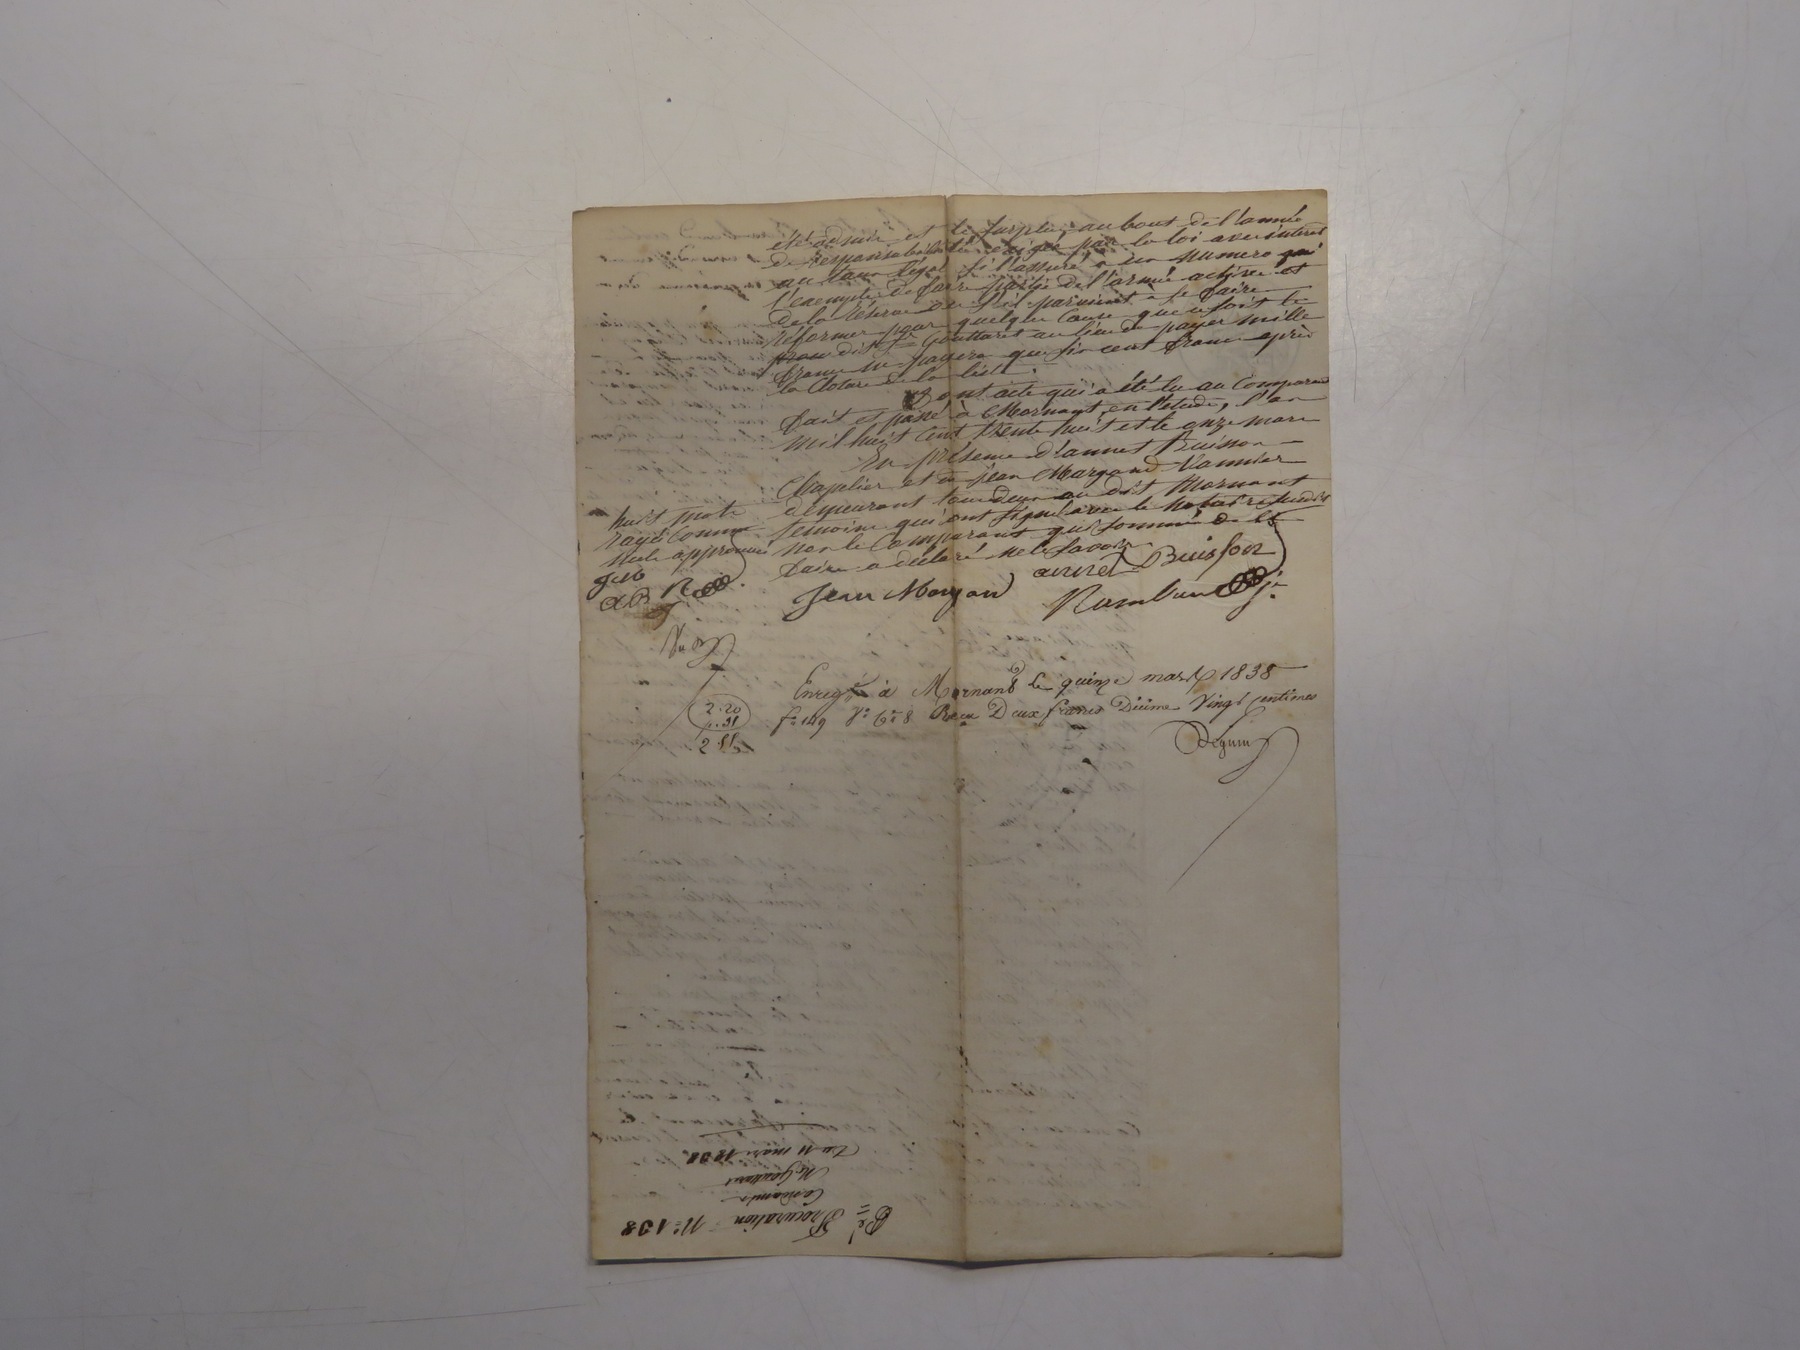 été admis et le surplus au bout de l'année
de responsabilité exigée par la loi avec intérêt
au taux légal si l'assuré a un numero qui
l'exempte de faire partie de l'armée active et
de la réserve ou s'il parvient a se faire
réformer pour quelque cause que ce soit le
dit Sr Gouttaret au lieu de payer mille
francs ne payera que six cent francs après
la cloture de la liste.
Dont acte qui a été lu au Comparant
fait et passé à Mornant, en l'etude, l'an
mil huit cent trente huit et le onze mars
En présence d'annet Buisson
Chapelier et de jean Margand Vannier
demeurant tous deux au dit Mornant
temoins qui ont signé avec le notaire susdit
non le Comparant qui sommé de le
faire a déclaré ne le savoir
huit mots
rayés comme
nuls approuvés
annet Buisson
Jean Margand
Enregé à Mornant le quinze mars 1838
fo 149 Vo Ce 8 Reçu Deux francs Décime Vingt centimes
2.20
2.55
Du 11 mars 1838
Procuration No 138